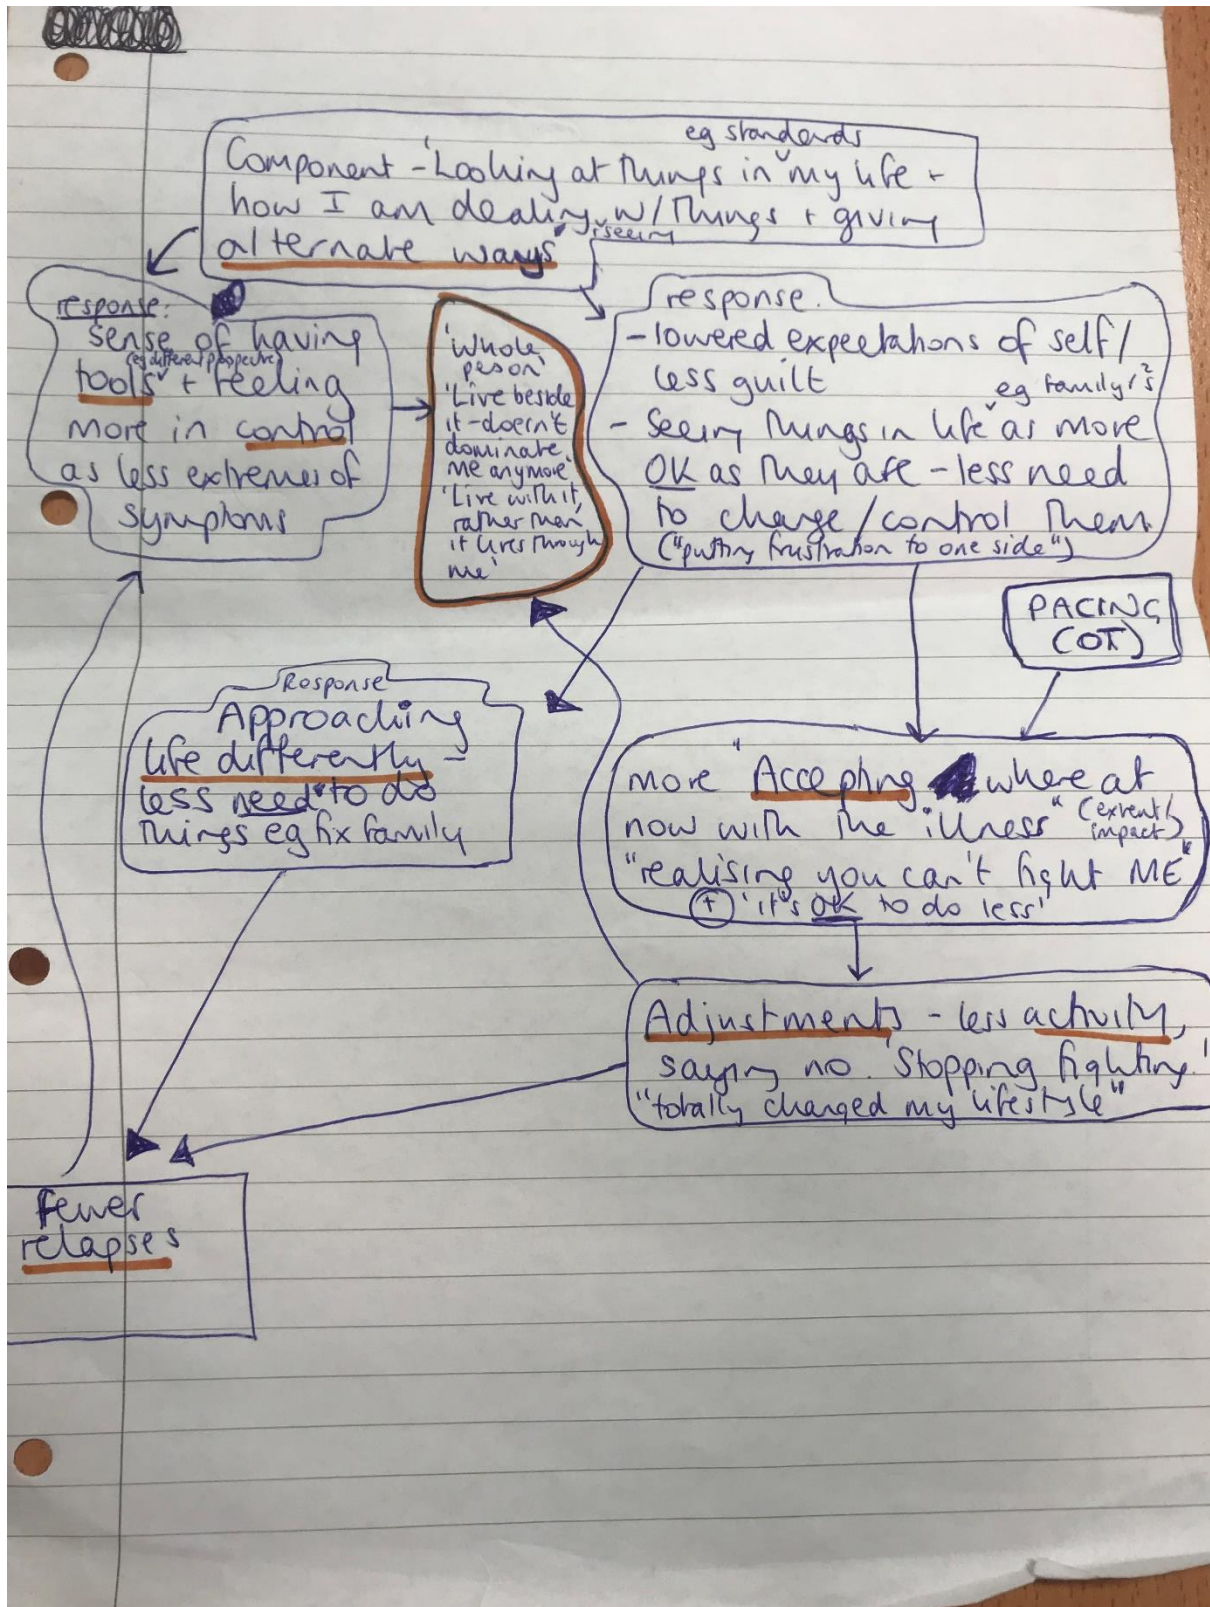 eg standards
Component - 'Looking at things in my life +
how I am dealing w/ things + giving
seeing
alternate ways'
response:
sense of having
(eg different perspective)
tools + feeling
more in control
as less extremes of
symptoms
'Whole
peson'
'Live beside
it - doesn't
dominate
me anymore'
'Live with it,
rather than
it lives through
me'
response.
- lowered expectations of self/
less guilt
eg family/
- Seeing things in life as more
OK as they are - less need
to change/control them
("putting frustration to one side")
PACING
(OT)
Response
Approaching
life differently -
less need to do
things eg fix family
more "Accepting where at
now with the illness" (extent/
impact)
"realising you can't fight ME"
+ 'it's OK to do less'
Adjustments - less activity,
saying no. 'Stopping fighting.'
"totally changed my lifestyle"
Fewer
relapses